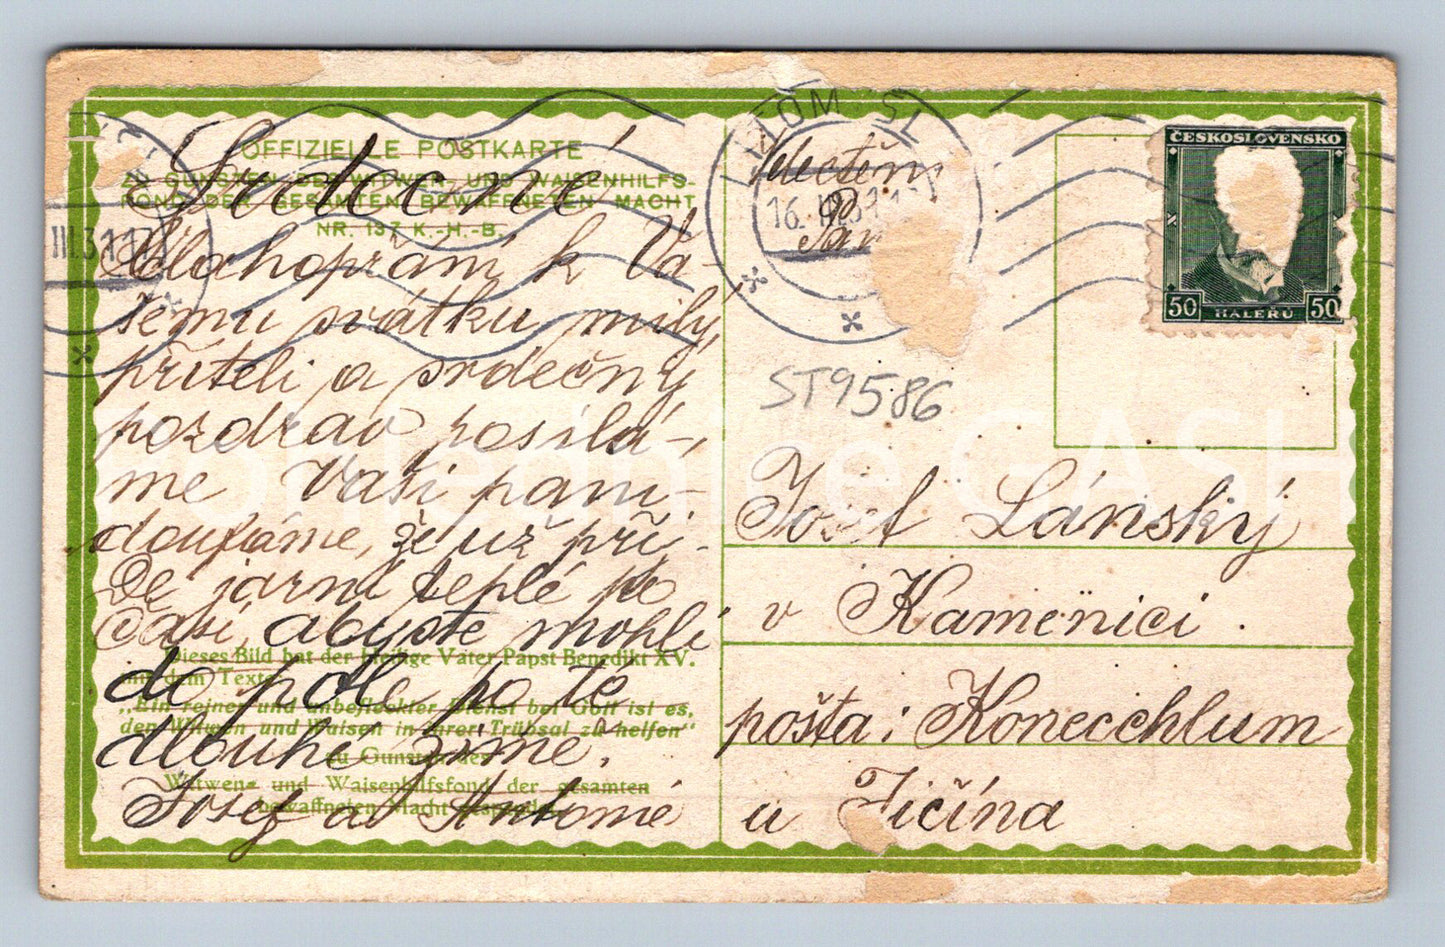 OFFIZIELLE POSTKARTE
ZU GUNSTEN DER WITWEN- UND WAISENHILFS-
FOND DER GESAMTEN BEWAFFNETEN MACHT
NR. 137 K.-H.-B.
Srdečné
Blahopřání k Va-
šemu svátku milý
příteli a srdečný
pozdrav posílá-
me Vaši paní
doufáme, že už při-
De jarní teplé po
časí, abyste mohli
do pole po té
dlouhé zimě.
Josef a Antonie
Dieses Bild hat der Heilige Vater Papst Benedikt XV.
mit dem Texte
„Ein reiner und unbefleckter Dienst bei Gott ist es,
den Witwen und Waisen in ihrer Trübsal zu helfen“
zu Gunsten des
Witwen- und Waisenhilfsfond der gesamten
bewaffneten Macht
Pohlednice GASH
16. III. 31
III. 31-17
ČESKOSLOVENSKO
50 HALÉŘŮ 50
ST9586
Josef Lánský
v Kamenici.
pošta: Konecchlum
u Jičína